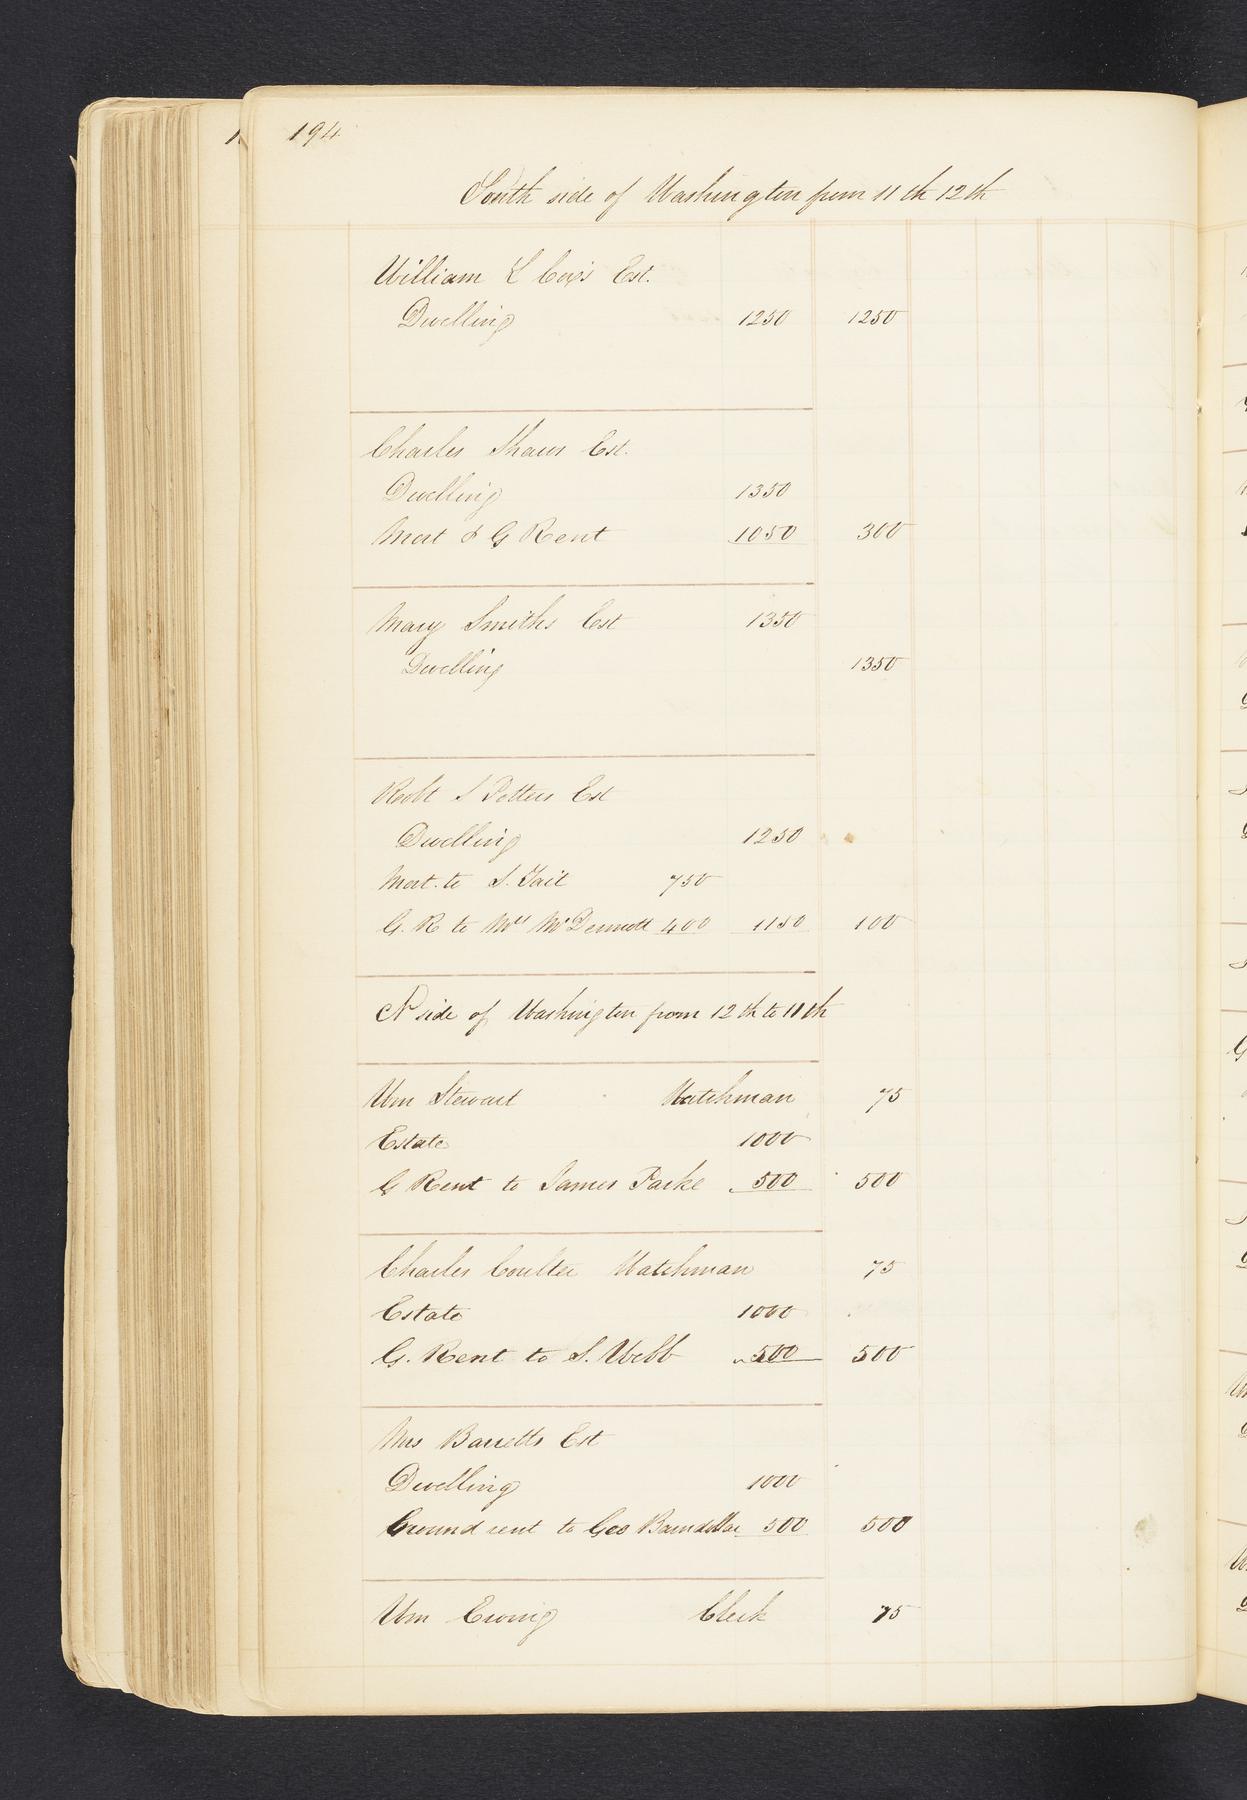 194
South side of Washington from 11th 12th
William L Cox's Est.
Dwelling 1250 1250
Charles Shaws Est.
Dwelling 1350
Mort & G Rent 1050 300
Mary Smiths Est 1350
Dwelling 1350
Robt S Potters Est
Dwelling 1250
Mort. to S. Tait 750
G. R to Mrs McDermott 400 1150 100
N side of Washington from 12th to 11th
Wm Stewart Watchman 75
Estate 1000
G Rent to James Parke 500 500
Charles Coulter Watchman 75
Estate 1000
G. Rent to S. Webb 500 500
Mrs Barretts Est
Dwelling 1000
Ground rent to Geo Barndollar 500 500
Wm Ewing Clerk 75